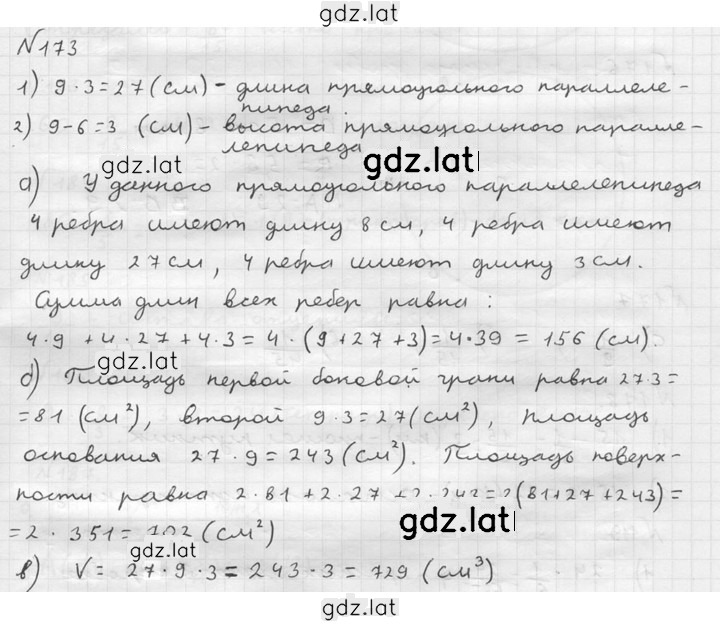 gdz.lat
№173
1) 9·3=27(см)- длина прямоугольного параллеле-
пипеда.
2) 9-6=3 (см)- высота прямоугольного паралле-
лепипеда
gdz.lat
gdz.lat
а) У данного прямоугольного параллелепипеда
4 ребра имеют длину 8 см, 4 ребра имеют
длину 27 см, 4 ребра имеют длину 3 см.
Сумма длин всех ребер равна:
4·9+4·27+4·3=4·(9+27+3)=4·39=156 (см).
gdz.lat
б) Площадь первой боковой грани равна 27·3=
=81 (см²), второй 9·3=27(см²), площадь
основания 27·9=243(см²). Площадь поверх-
ности равна 2·81+2·27+2·243=2(81+27+243)=
=2·351=702(см²)
gdz.lat
gdz.lat
в) V=27·9·3=243·3=729 (см³)
gdz.lat